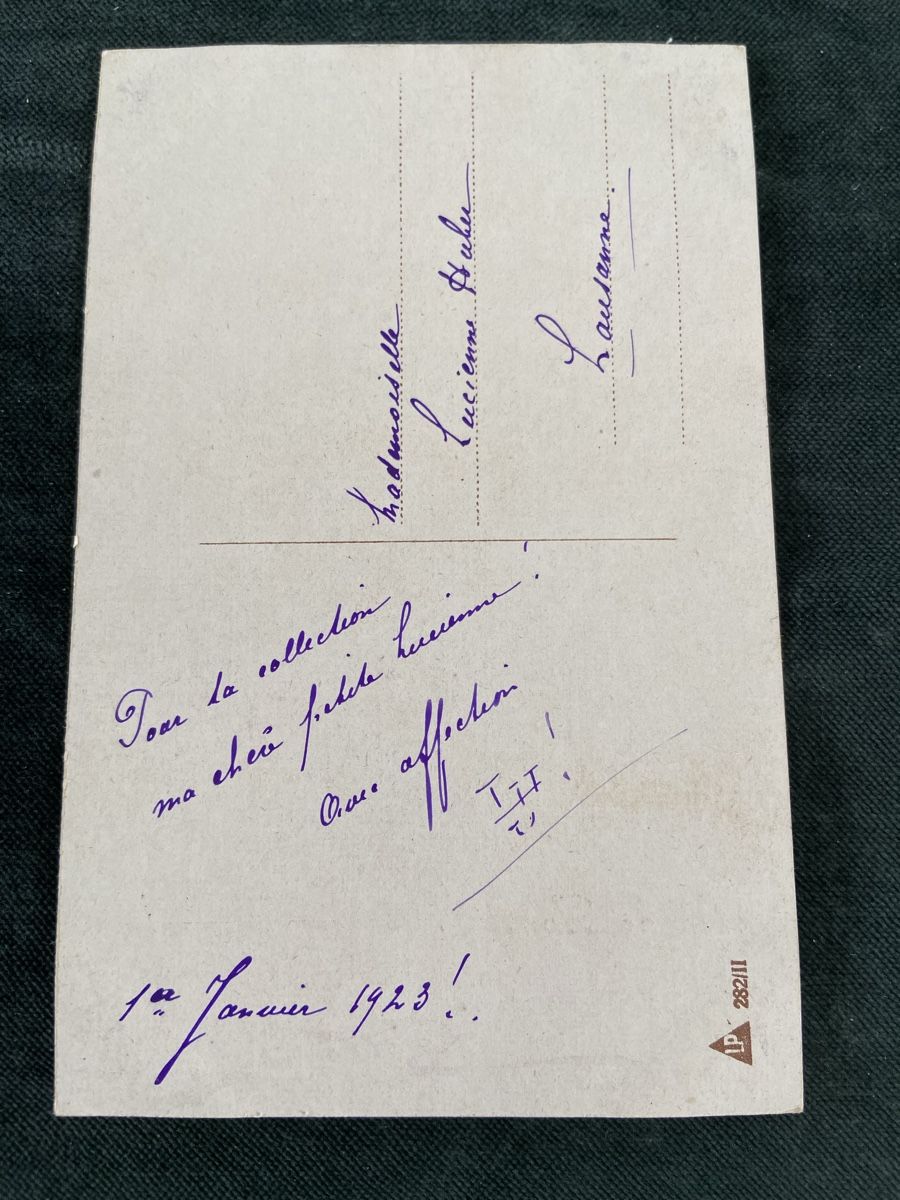 Pour ta collection
ma chère petite Lucienne!
Avec affection
1er Janvier 1923!..
Mademoiselle
Lucienne Huber
Lausanne.
LP 282/II